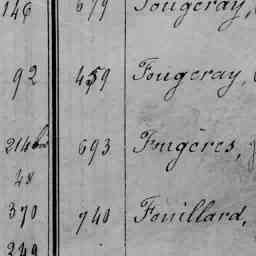 146 679 Fougeray,
92 459 Fougeray,
214 bis 693 Fougères,
48
370 740 Fouillard,
249